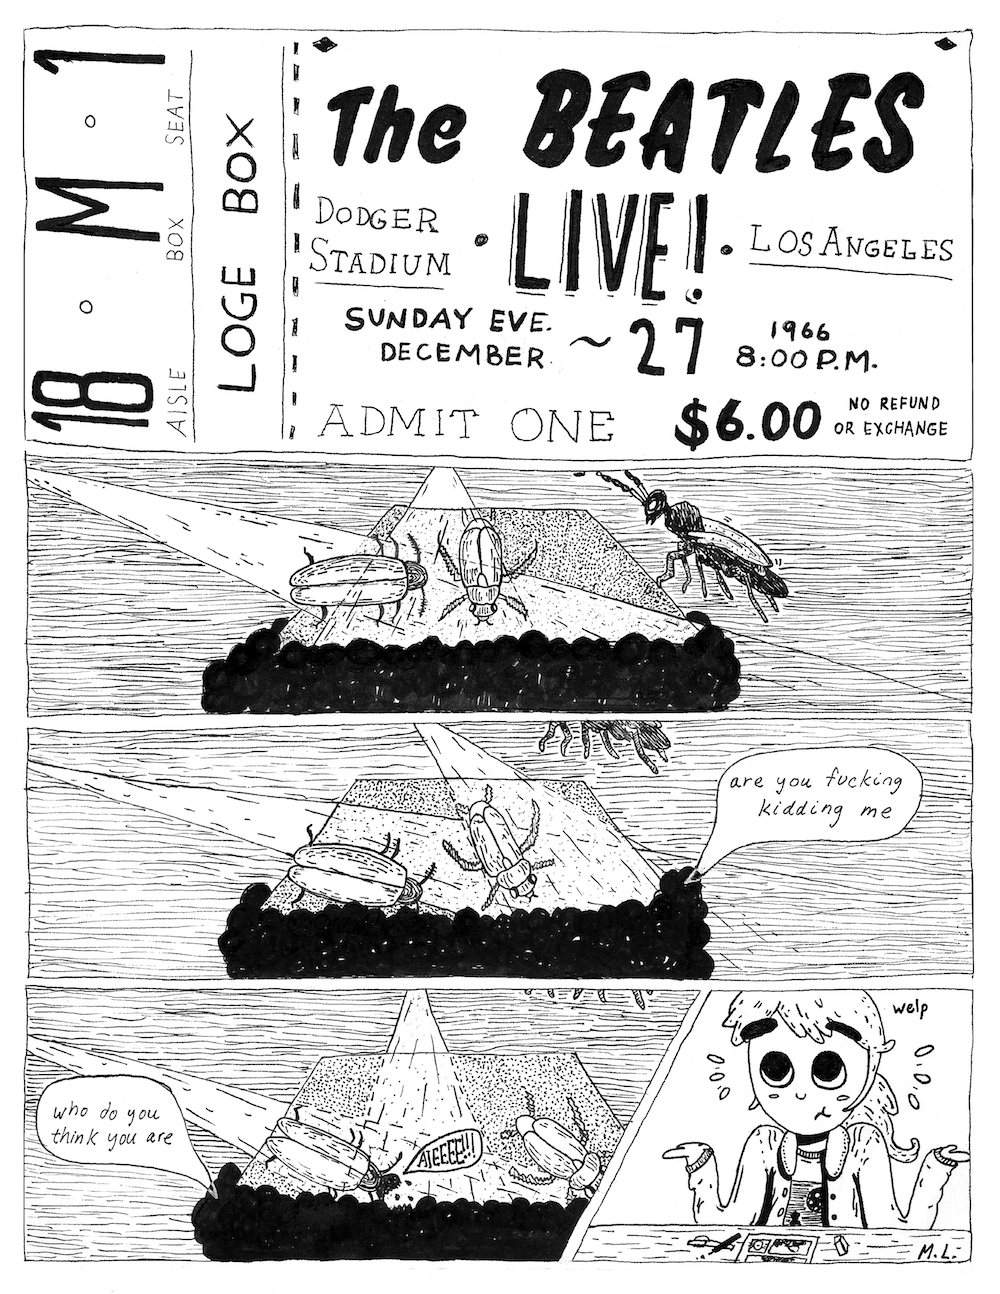 18 · M · 1
AISLE BOX SEAT
LOGE BOX
The BEATLES
DODGER
STADIUM
· LIVE! ·
LOS ANGELES
SUNDAY EVE.
DECEMBER
~ 27
1966
8:00 P.M.
ADMIT ONE
$6.00
NO REFUND
OR EXCHANGE
are you fucking
kidding me
who do you
think you are
AIEEEE!!!
welp
M.L.